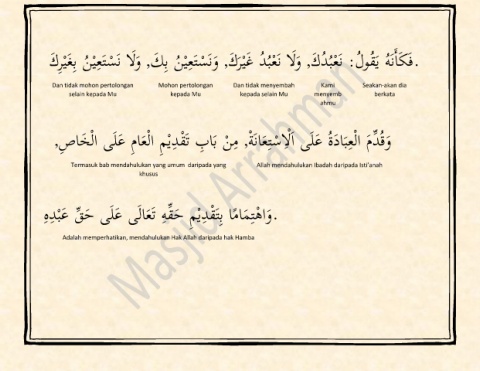 فَكَأَنَّهُ يَقُولُ: نَعْبُدُكَ, وَلَا نَعْبُدُ غَيْرَكَ, وَنَسْتَعِيْنُ بِكَ, وَلَا نَسْتَعِيْنُ بِغَيْرِكَ.
Dan tidak mohon pertolongan selain kepada Mu
Mohon pertolongan kepada Mu
Dan tidak menyembah kepada selain Mu
Kami menyemb ahmu
Seakan-akan dia berkata
وَقُدِّمَ الْعِبَادَةُ عَلَى الْاِسْتِعَانَةْ, مِنْ بَابِ تَقْدِيْمِ الْعَامِ عَلَى الْخَاصِ,
Termasuk bab mendahulukan yang umum daripada yang khusus
Allah mendahulukan Ibadah daripada Isti'anah
وَاهْتِمَامًا بِتَقْدِيْمِ حَقِّهِ تَعَالَى عَلَى حَقِّ عَبْدِهِ.
Adalah memperhatikan, mendahulukan Hak Allah daripada hak Hamba
Masjid Arrahman